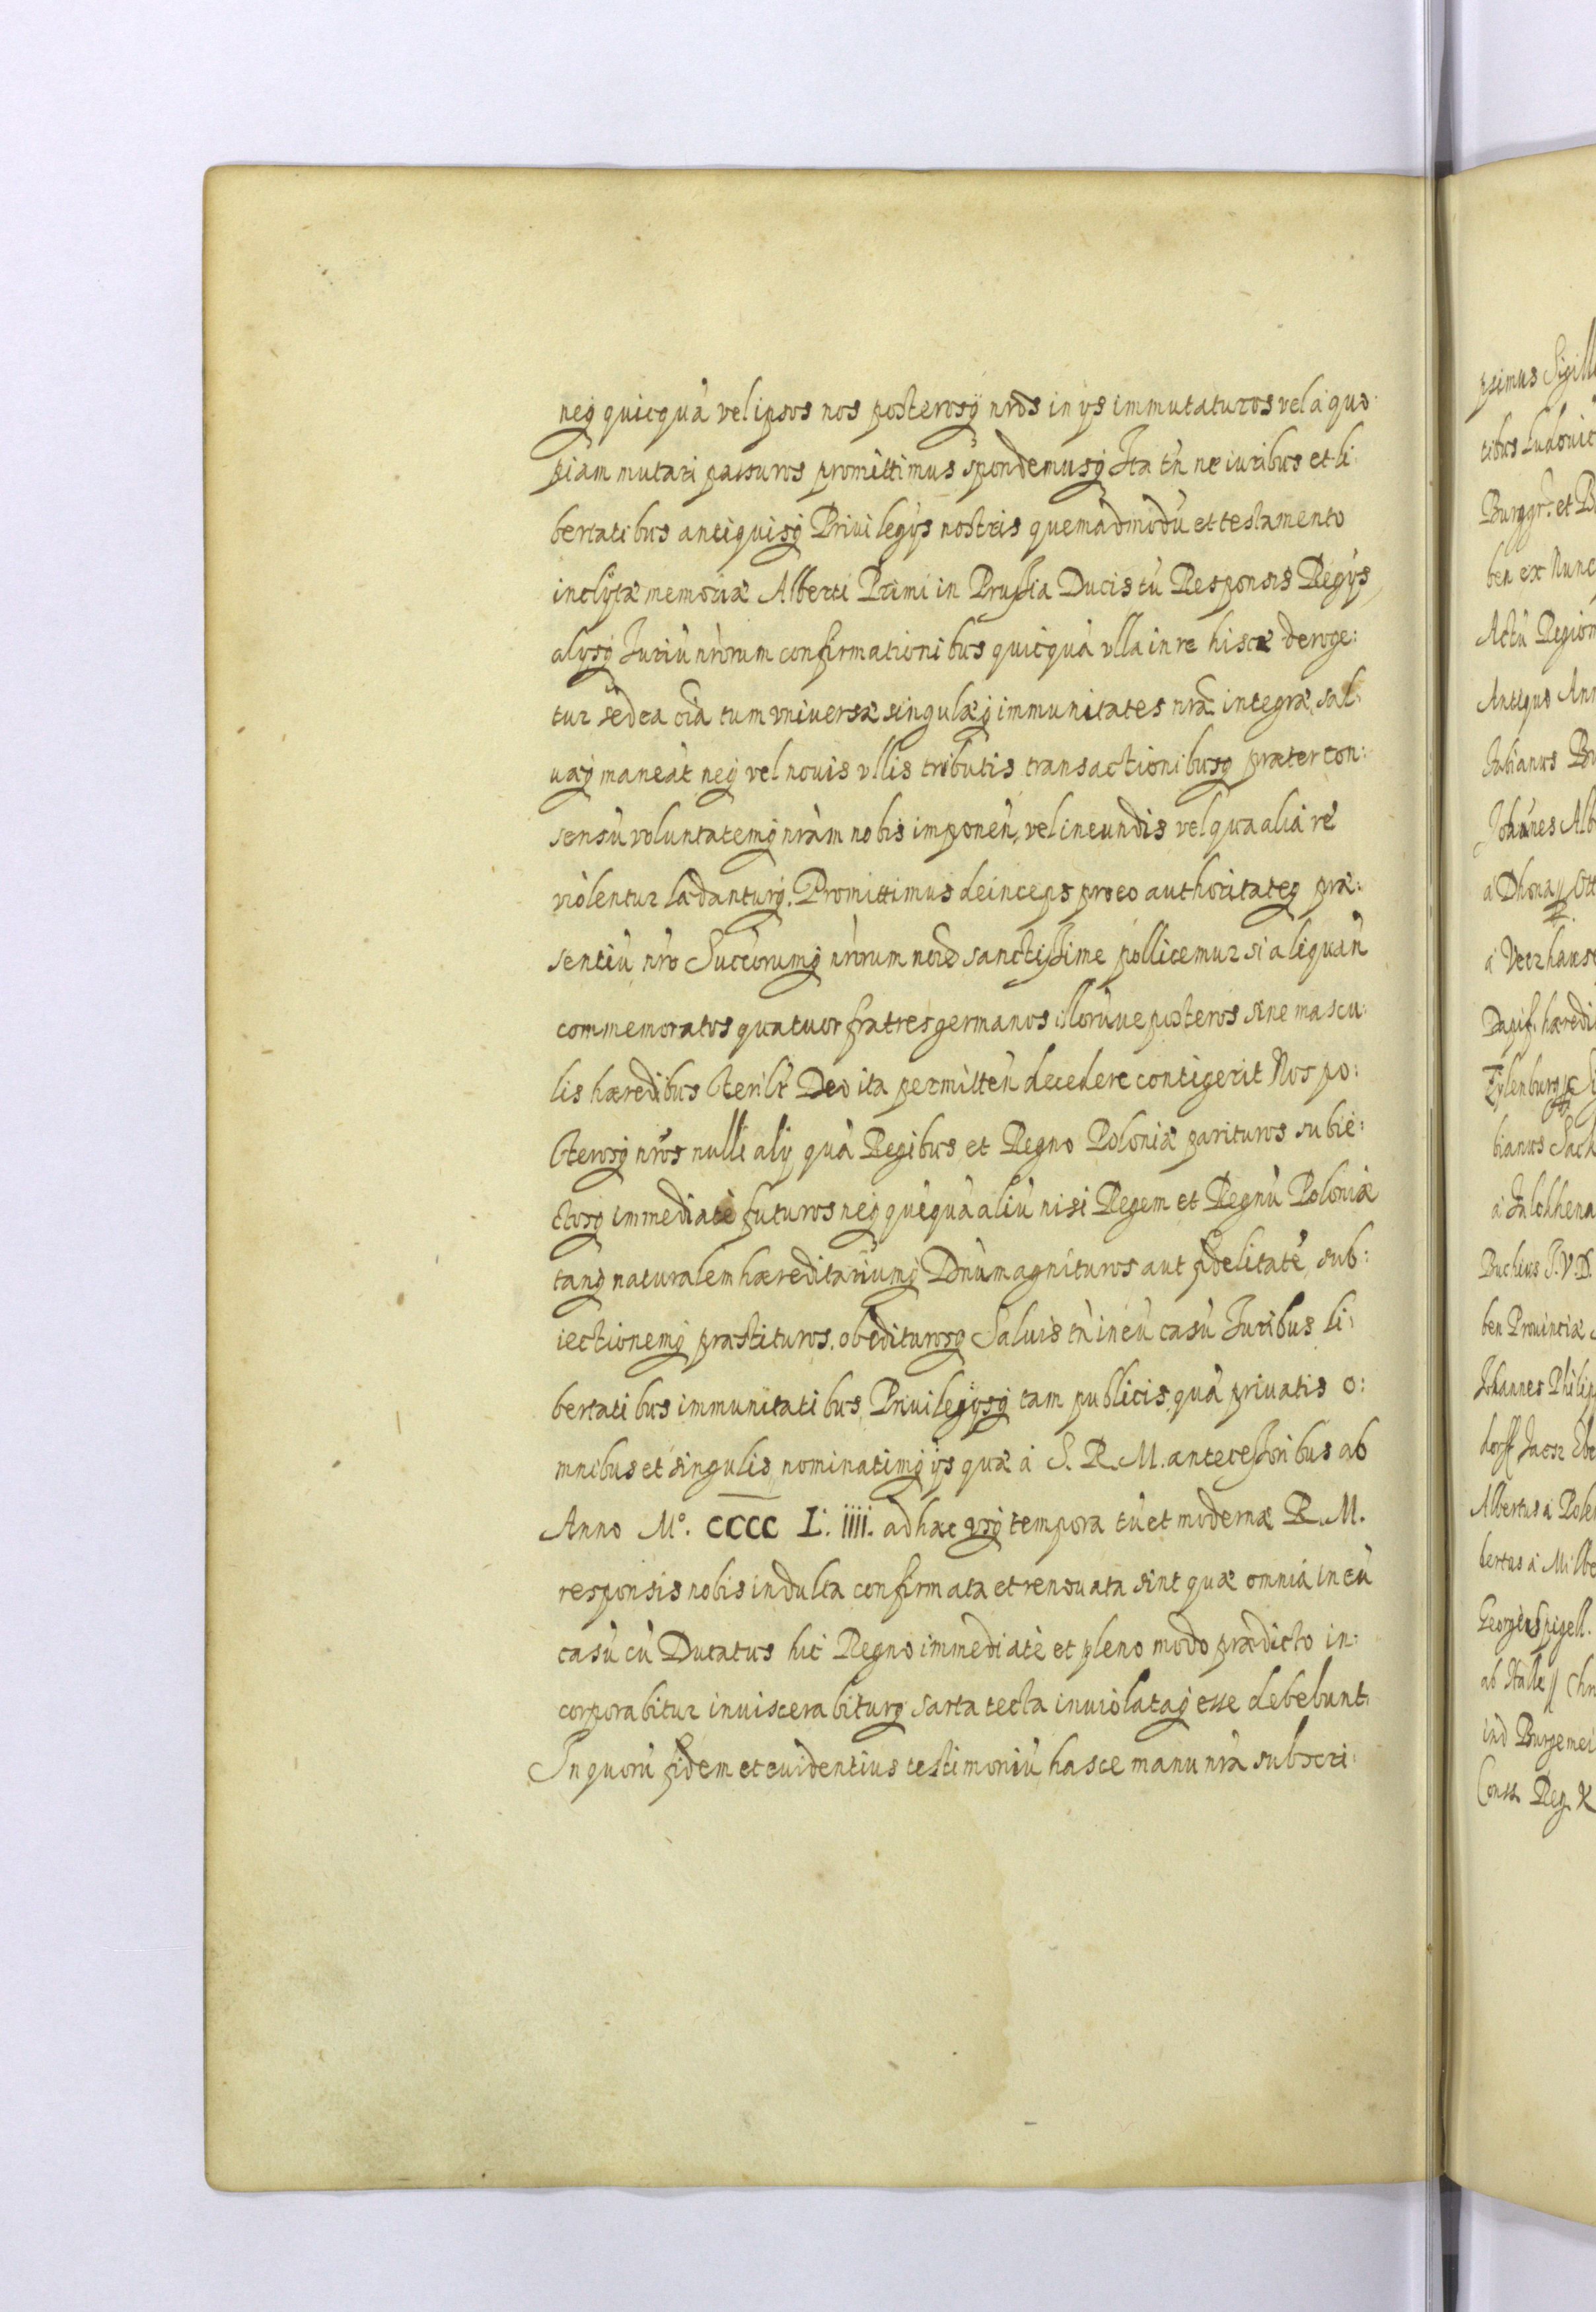 neq₃ quicquā vel ipsos nos posterosq₃ nr̄os in ijs immutaturos vel à quo-
piam mutari passuros promittimus spondemusq₃ Ita tn̄ ne iuribus et li:
bertatibus antiquisq₃ Privilegijs nostris quemadmodū et testamento
inclÿtæ memoriæ Alberti Primi in Prussia Ducis tū Responsis Regijs
alijsq₃ Juriū nr̄orum confirmationibus quicquā vlla in re hisce deroge:
tur sed ea oīa tum vniversæ singulæq₃ immunitates nr̄æ integræ, sal-
uæq₃ maneāt neq₃ vel nouis vllis tributis transactionibusq₃ præter con:
sensū voluntatemq₃ nr̄am nobis imponēn, vel ineundis vel qua alia re
violentur lædanturq₃. Promittimus deinceps pro eo authoritateq₃ præ:
sentiū nr̄o Succorumq₃ nr̄orum noīe sanctissime pollicemur si aliquan̄
commemoratos quatuor fratres germanos illorūue posteros sine mascu:
lis hæredibus Deo ita permitten̄ decedere contigerit Nos po:
sterosq₃ nr̄os nulli alij quā Regibus et Regno Poloniæ parituros subie:
ctosq₃ immediatè futuros neq₃ quēquā aliū nisi Regem et Regnū Poloniæ
tanq₃ naturalem hæreditariumq₃ Dnūm agnituros aut fidelitatē, sub:
iectionemq₃ præstituros. obedituros q₃ Saluis tn̄ in eū casū Juribus li:
bertatibus immunitatibus, Privilegijsq₃ tam publicis, quā privatis o:
mnibus et singulis, nominatimq₃ ijs quæ à S. R. M. antecessoribus ab
Anno Mº. CCCC L. iiii. ad hæc vsq₃ tempora tū et modernæ R. M.
responsis nobis indulta confirmata et renouata sint quæ omnia in eū
casū cū Ducatus hic Regno immediatè et pleno modo prædicto in:
corporabitur inviscerabiturq₃ sarta tecta inviolataq₃ esse debebunt.
In quorū fidem et evidentius testimoniū hasce manu nr̄a subscri:
psimus Sigill
tibus Ludouic
Burggr. et
ben ex Nunc
Actū Region
Antiquo Ann
Fabianus
Johānes Alb
à Dhona

Dapif. hæredi
Eylenburg
bianus Sack

Buchius J.V.D.
ben Provinciæ
Johannes Philip
dorff
Albertus à Polen
bertus à Milbe
Georgius Spigell.
ab Halle // Chr
ind Burgemei
Conss. Reg.